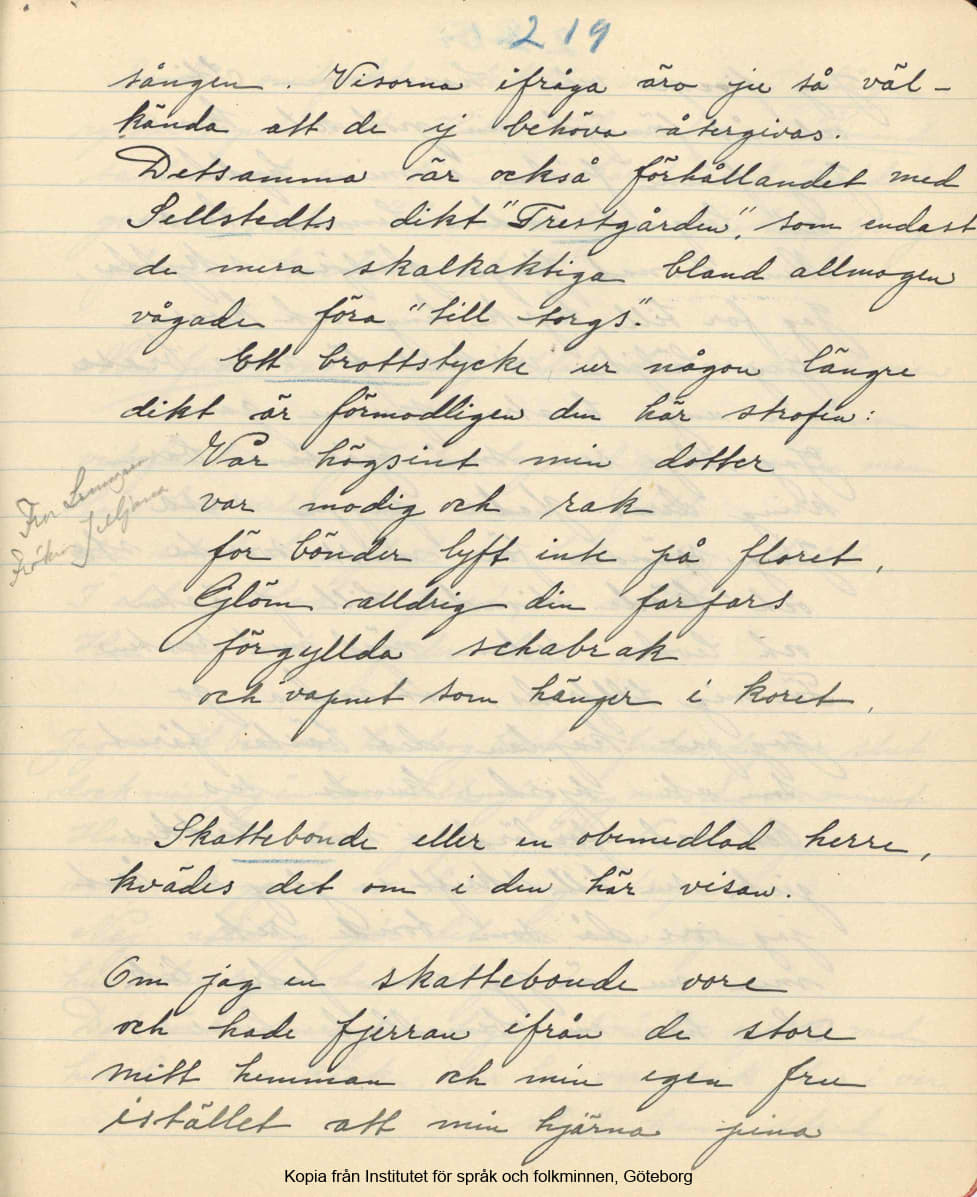 219
sången. Visorna ifråga äro ju så väl-
kända att de ej behöva återgivas.
Detsamma är också förhållandet med
Sellstedts dikt "Trestgården", som endast
de mera skalkaktiga bland allmogen
vågade föra "till torgs".
Ett brottstycke ur någon längre
dikt är förmodligen den här strofen:
Var högsint min dotter
var modig och rak
för bönder lyft inte på floret,
Glöm alldrig din farfars
förgyllda schabrak
och vapnet som hänger i koret.
Fru Lenngren
Fröken Juliana
Skattebonde eller en obemedlad herre,
kvädes det om i den här visan.
Om jag en skattebonde vore
och hade fjerran ifrån de store
mitt hemman och min egen fru
istället att min hjärna pina
Kopia från Institutet för språk och folkminnen, Göteborg